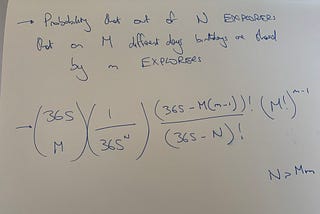 → Probability that out of N EXPLORERS
that on M different days birthdays are shared
by m EXPLORERS
→ (365 M) (1/365^N) (365-M(m-1))!/(365-N)! (M!)^{m-1}
N > Mm